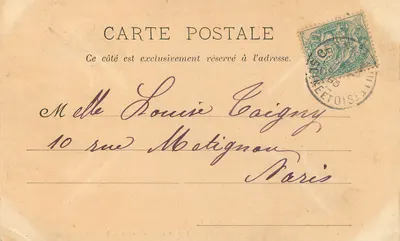 CARTE POSTALE
Ce côté est exclusivement réservé à l'adresse.
Melle Louise Taigny
10 rue Matignon
Paris